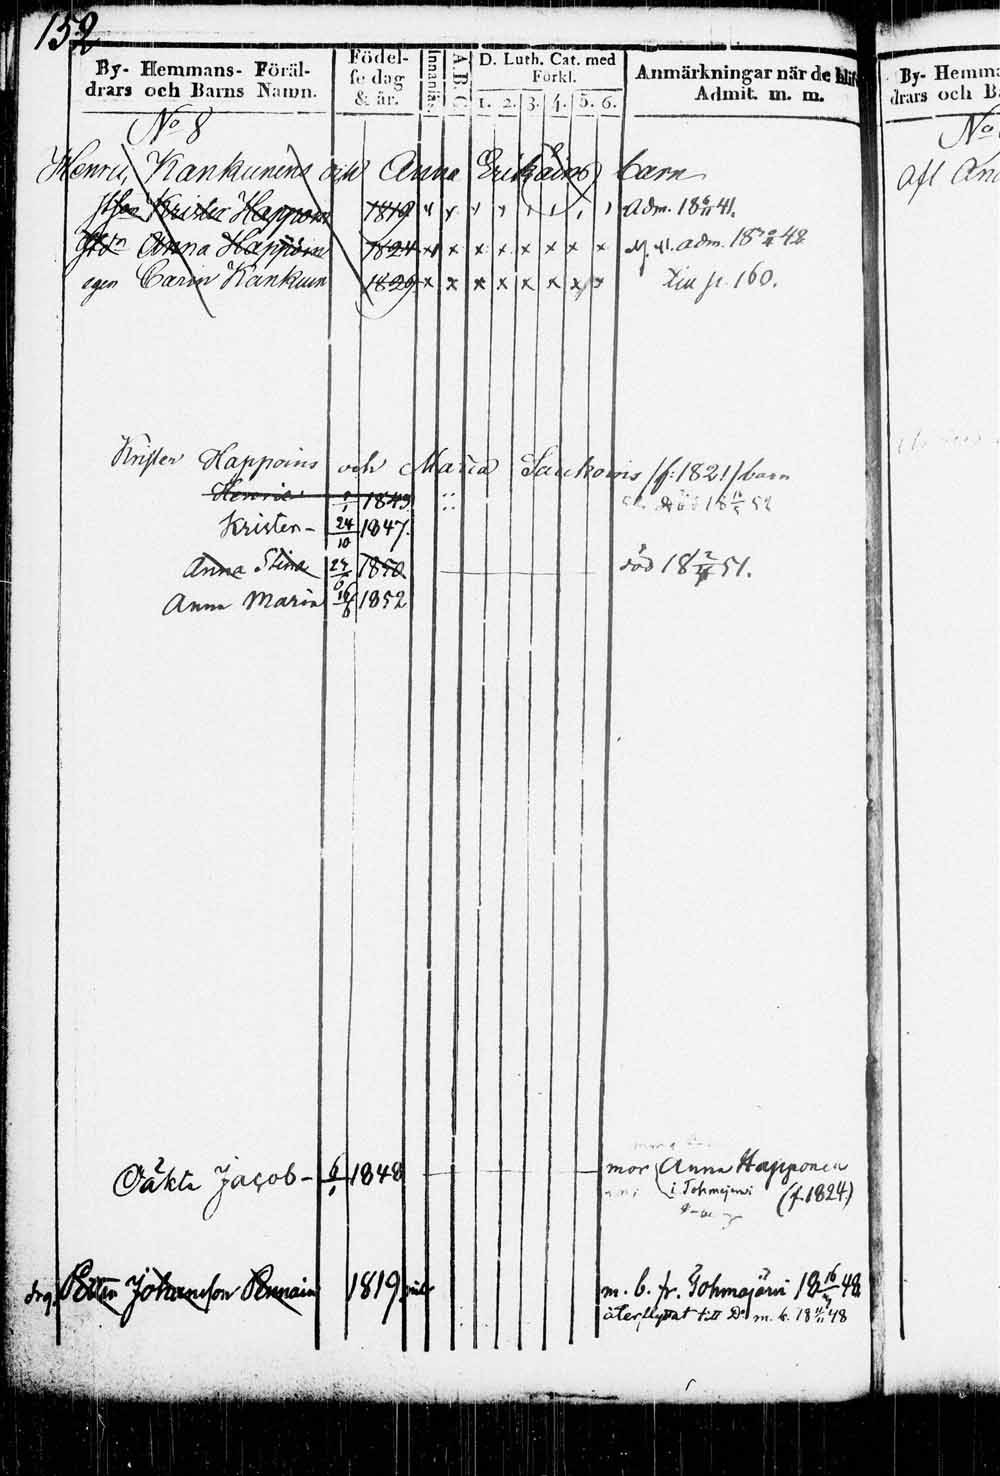 152
By- Hemmans- Föräl-
drars och Barns Namn.
Födel-
se dag
& år.
Innanläs.
A. B. C.
D. Luth. Cat. med
Förkl.
1. 2. 3. 4. 5. 6.
Anmärkningar när de blif
Admit. m. m.
No 8
Henric Kankunens och Anna Erik barn
Krister Happoin 1819 Adm. 18 41.
Anna Happoin 1824 adm. 18 48
egen Carin Kankun 1829 160.
Krister Happoins och Maria Saukoins (f. 1821) barn
Henric 1845 död 18 52
Krister - 24/10 1847.
Anna Stina 1850 död 18 51.
Anna Maria 16/6 1852
Oäkta Jacob - 6/1 1848 mor Anna Happonen
i Tohmajerwi (f. 1824)
drg. Petter Johansson Pennain 1819 m. b. fr. Tohmajärvi 18 16 48
återflyttat till Do m. b. 18 48
By- Hemma
drars och Ba
No
Afl Ann